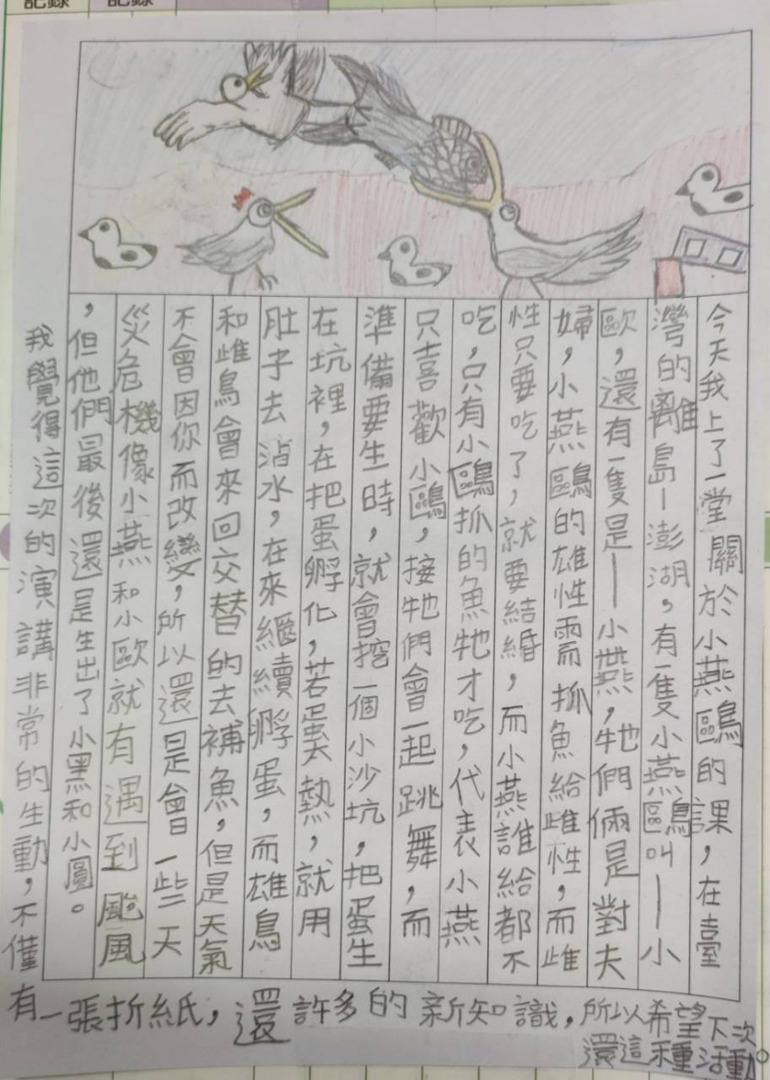 記錄 記錄
今天我上了一堂關於小燕鷗的課，在臺
灣的離島—澎湖，有一隻小燕鷗叫—小
歐，還有一隻是—小燕，牠們倆是對夫
婦，小燕鷗的雄性需抓魚給雌性，而雌
性只要吃了，就要結婚，而小燕誰給都不
吃，只有小鷗抓的魚牠才吃，代表小燕
只喜歡小鷗，接牠們會一起跳舞，而
準備要生時，就會挖一個小沙坑，把蛋生
在坑裡，在把蛋孵化，若蛋太熱，就用
肚子去沾水，在來繼續孵蛋，而雄鳥
和雌鳥會來回交替的去補魚，但是天氣
不會因你而改變，所以還是會一些天
災危機像小燕和小歐就有遇到颱風
，但他們最後還是生出了小黑和小圓。
我覺得這次的演講非常的生動，不僅
有一張折紙，還許多的新知識，所以希望下次
還這種活動。